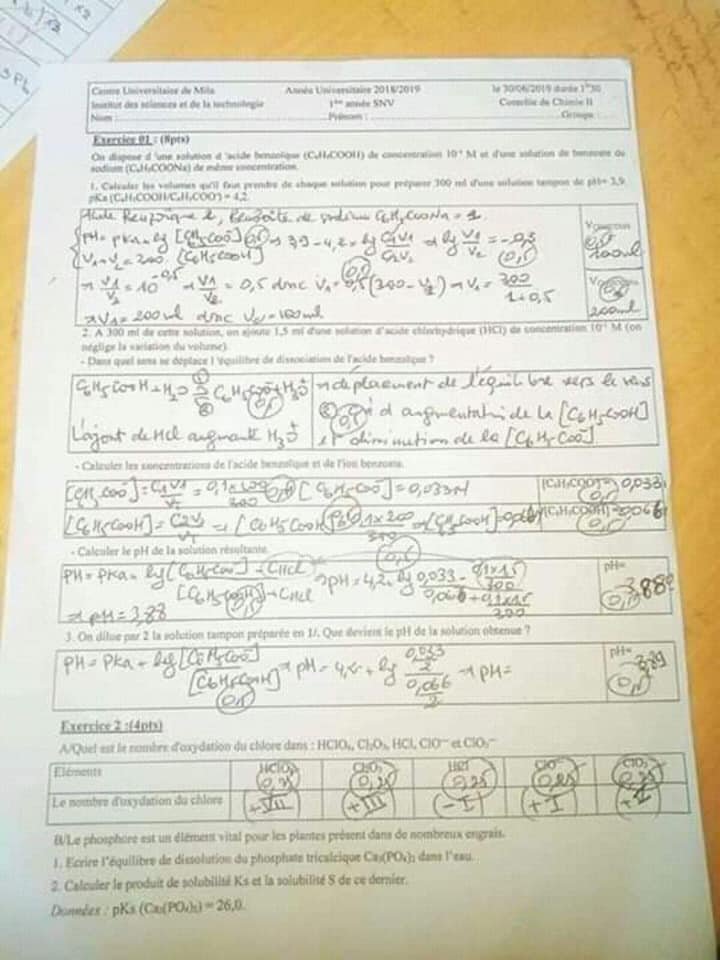 Centre Universitaire de Mila Année Universitaire 2018/2019 le 30/06/2019 durée 1h30
Institut des sciences et de la technologie 1ère année SNV Contrôle de Chimie II
Nom : Prénom : Groupe
Exercice 01 : (8pts)
On dispose d'une solution d'acide benzoïque (C₆H₅COOH) de concentration 10⁻¹ M et d'une solution de benzoate de
sodium (C₆H₅COONa) de même concentration.
1. Calculer les volumes qu'il faut prendre de chaque solution pour préparer 300 ml d'une solution tampon de pH= 3,9
pKa (C₆H₅COOH/C₆H₅COO⁻) = 4,2
Acide Benzoïque 2, Benzoate de sodium C₆H₅COONa = 1.
pH = pKa + lg [C₆H₅COO⁻] 0,5 → 3,9 - 4,2 = lg C₁V₁ → lg V₁ = -0,3
V₁ + V₂ = 300 [C₆H₅COOH] C₂V₂ V₂ (0,5)
100 ml
→ V₁/V₂ = 10 → V₁/V₂ = 0,5 donc V₁ = 0,5 (300 - V₂) → V₁ = 300
1+0,5
→ V₁ = 200 ml donc = 100 ml 200 ml
2. A 300 ml de cette solution, on ajoute 1,5 ml d'une solution d'acide chlorhydrique (HCl) de concentration 10⁻¹ M (on
néglige la variation du volume).
- Dans quel sens se déplace l'équilibre de dissociation de l'acide benzoïque ?
C₆H₅COOH + H₂O ⇌ C₆H₅COO⁻ + H₃O⁺ → déplacement de l'équilibre vers le sens
② d'augmentation de la [C₆H₅COOH]
L'ajout de HCl augmente H₃O⁺ et diminution de la [C₆H₅COO⁻]
- Calculer les concentrations de l'acide benzoïque et de l'ion benzoate.
[C₆H₅COO⁻] = C₁V₁ = 0,1×100 [C₆H₅COO⁻] = 0,033 M [C₆H₅COO⁻]= 0,033
300 0,5
[C₆H₅COOH] = C₂V₂ → [C₆H₅COOH] 0,1×200 [C₆H₅COOH]= 0,066
- Calculer le pH de la solution résultante.
pH = pKa + lg [C₆H₅COO⁻] - CHCl → pH = 4,2 + lg 0,033 - 0,1×1,5/300 pH=
[C₆H₅COOH] + CHCl 0,066 + 0,1×1,5/300 3,88
→ pH = 3,88
3. On dilue par 2 la solution tampon préparée en 1/. Que devient le pH de la solution obtenue ?
pH = pKa + lg [C₆H₅COO⁻] → pH = 4,2 + lg 0,033/2 → pH = pH= 3,89
[C₆H₅COOH] 0,066/2
Exercice 2 :(4pts)
A/Quel est le nombre d'oxydation du chlore dans : HClO₄, Cl₂O₃, HCl, ClO⁻ et ClO₃⁻
Eléments HClO₄ Cl₂O₃ HCl ClO⁻ ClO₃⁻
0,25 0,25 0,25 0,25 0,25
Le nombre d'oxydation du chlore +VII +III -I +I +V
B/Le phosphore est un élément vital pour les plantes présent dans de nombreux engrais.
1. Ecrire l'équilibre de dissolution du phosphate tricalcique Ca₃(PO₄)₂ dans l'eau.
2. Calculer le produit de solubilité Ks et la solubilité S de ce dernier.
Données : pKs (Ca₃(PO₄)₂) = 26,0.